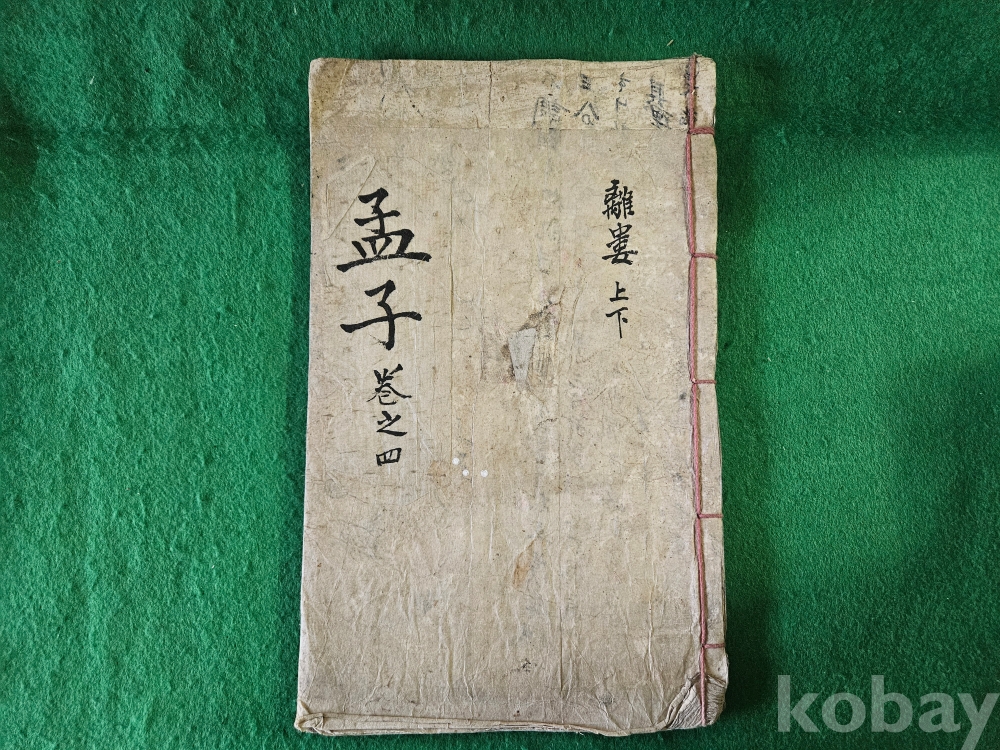 離婁 上下
孟子 卷之四
kobay